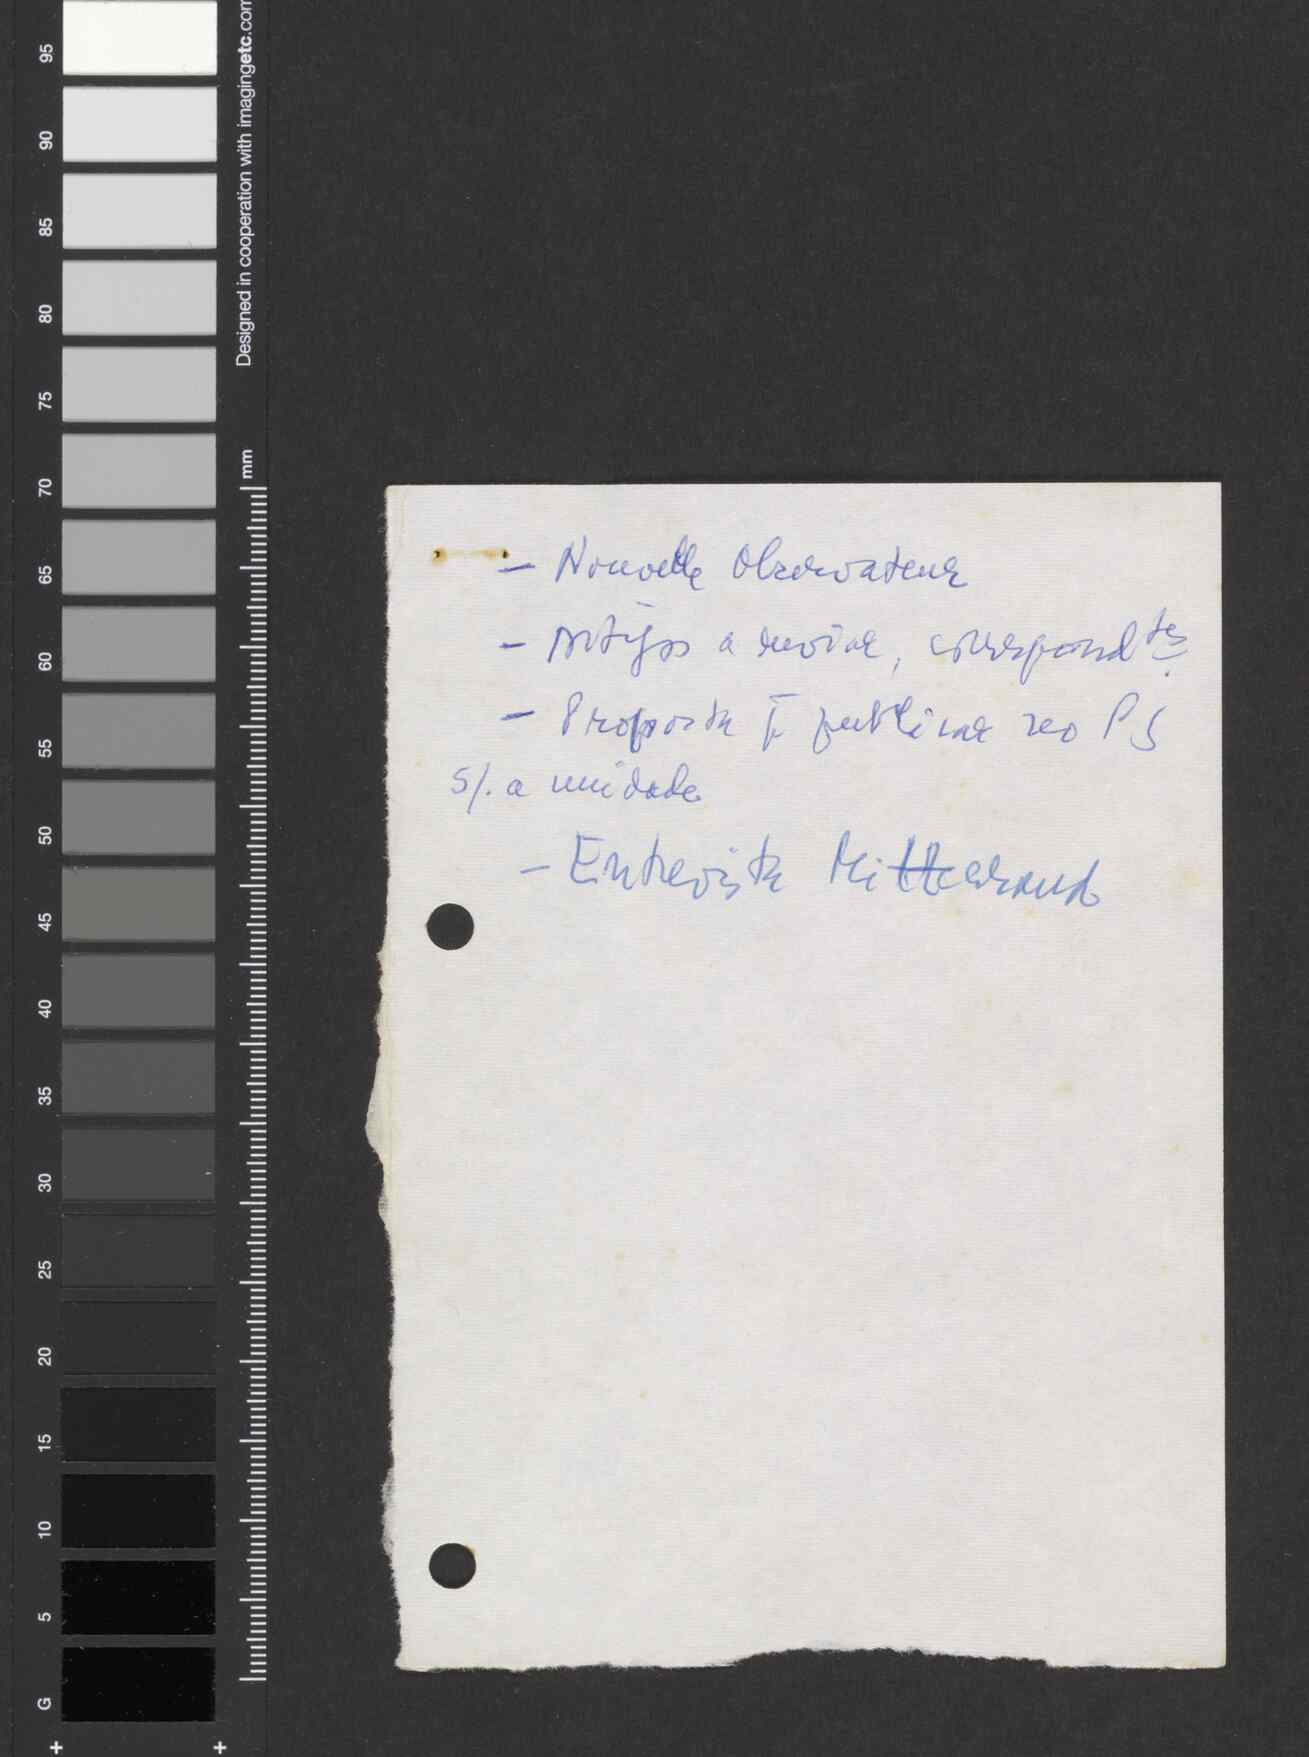 95
90
85
80
75
70
65
60
55
50
45
40
35
30
25
20
15
10
5
G
Designed in cooperation with imagingetc.com
mm
- Nouvelle Observateur
- Artigos a enviar, correspond tes
- Proposta p publicar no PS
s/. a unidade
- Entrevista Mitterrand